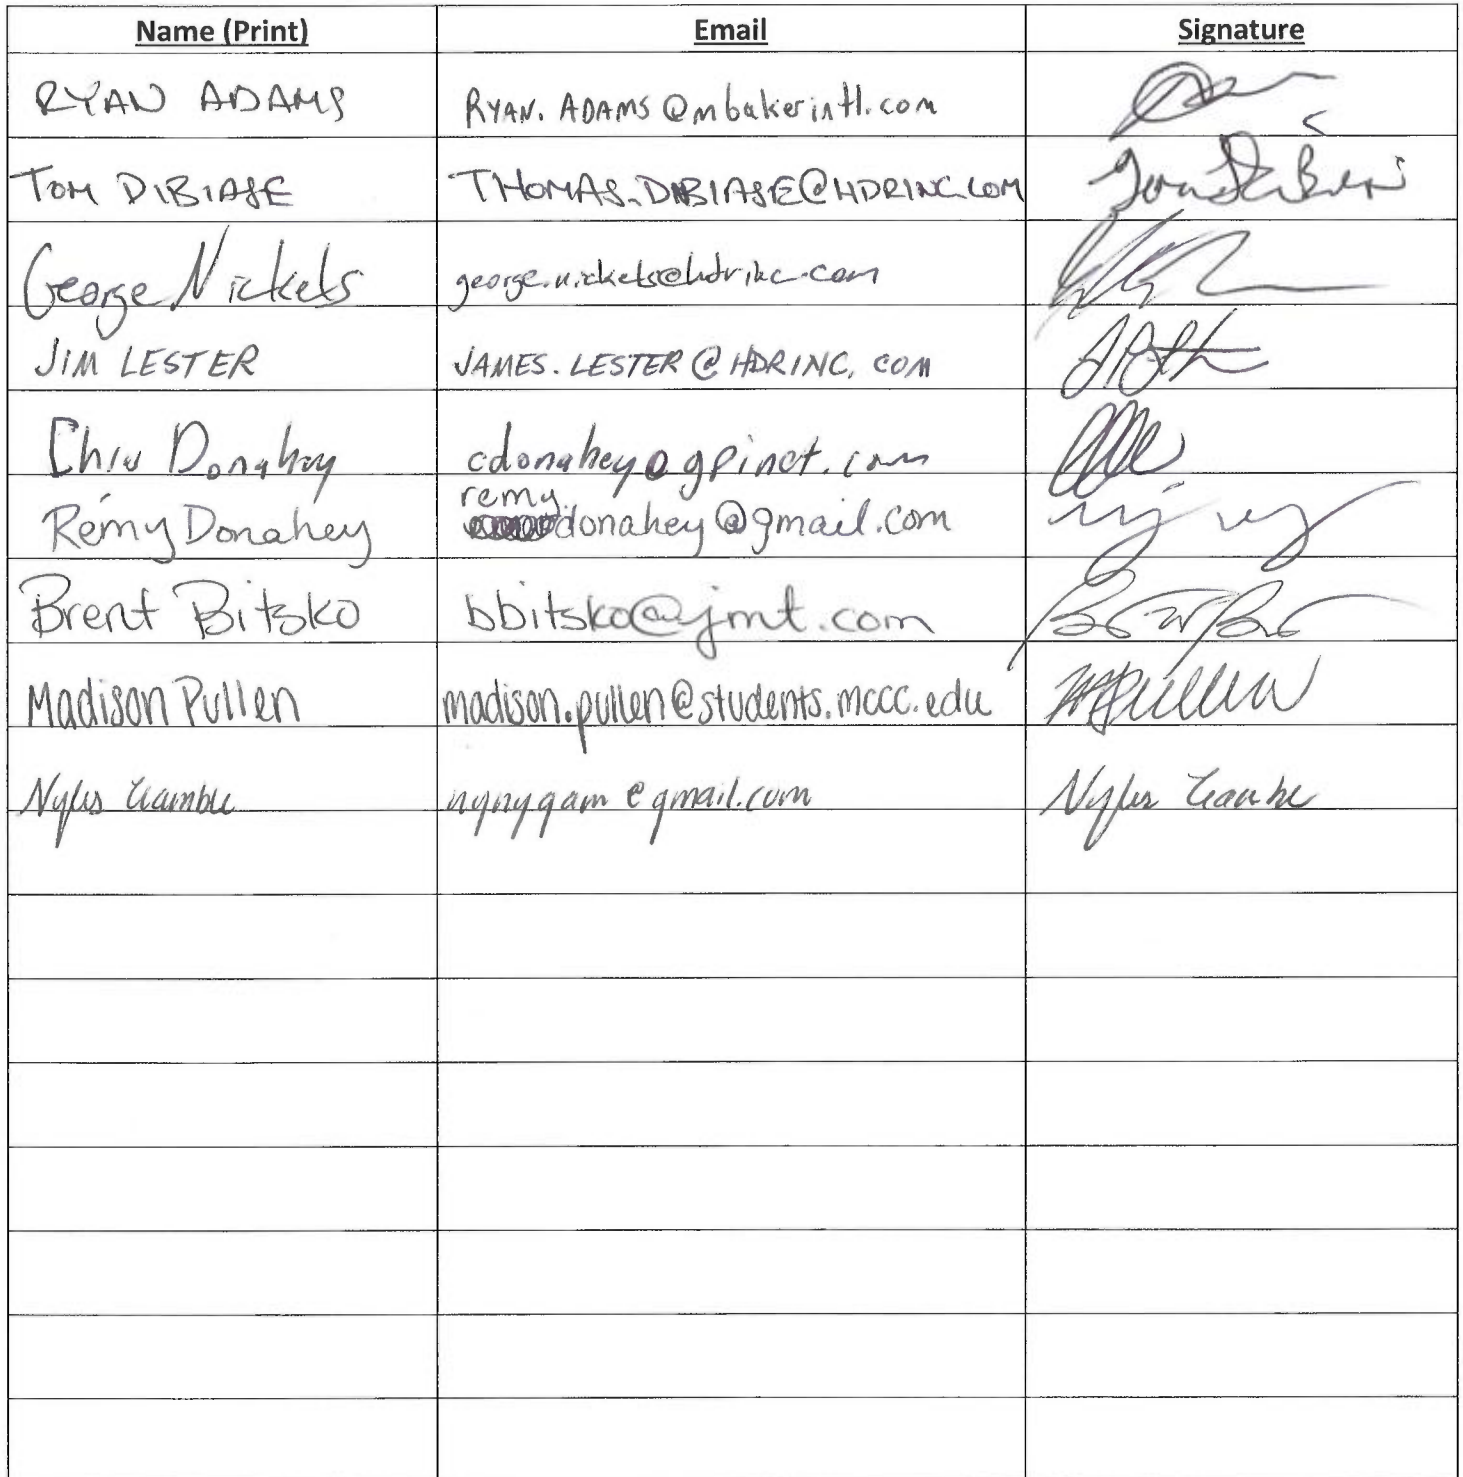 Name (Print) Email Signature
RYAN ADAMS RYAN.ADAMS@mbakerintl.com
TOM DIBIASE THOMAS.DIBIASE@HDRINC.COM
George Nickels george.nickels@hdrinc.com
JIM LESTER JAMES.LESTER@HDRINC.COM
Chris Donahey cdonahey@gpinet.com
remy
Rémy Donahey donahey@gmail.com
Brent Bitsko bbitsko@jmt.com
Madison Pullen madison.pullen@students.mccc.edu MPullen
Nyles Gamble nynygam@gmail.com Nyles Gamble